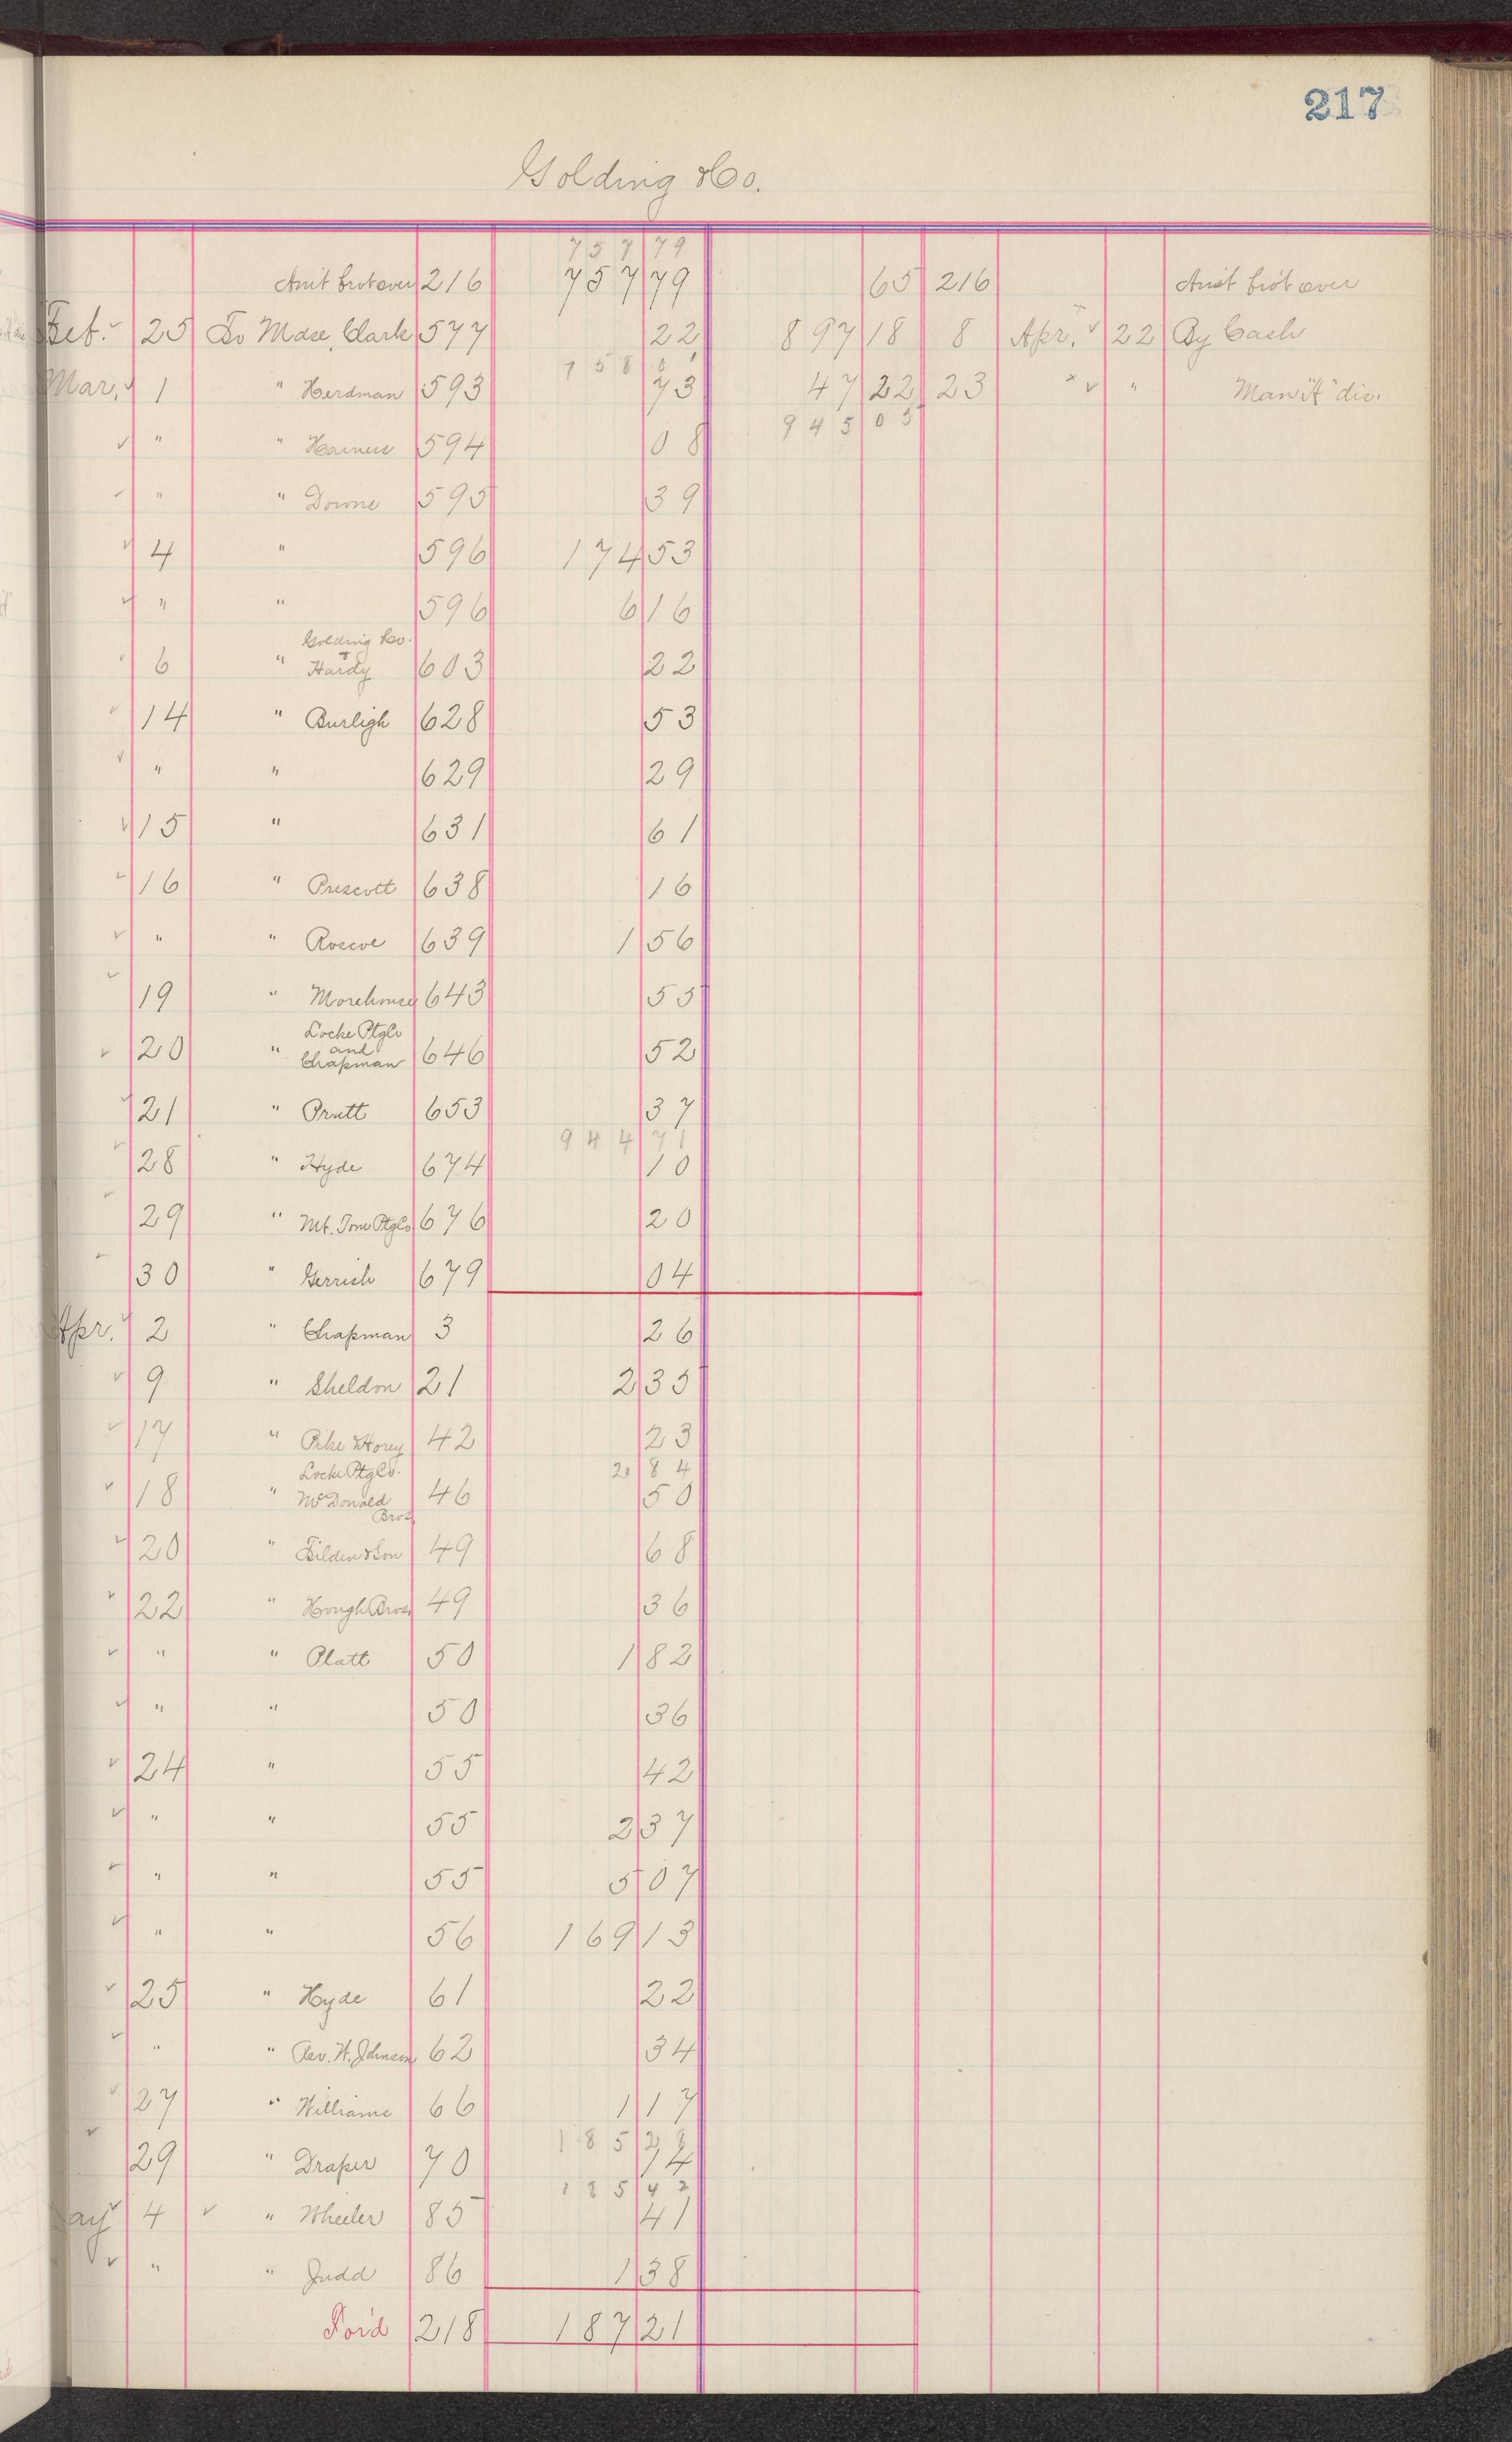 217
Golding & Co.
757 79
Am't brot over 216 757 79 65 216 Am't bro't over
Feb. 25 To Mase, Clark 577 22 897 18 8 Apr. 22 By Cash
758 01
Mar. 1 " Herdman 593 73 47 22 23 " " Man "A" dis.
945 05
" " 594 08
" " Downe 595 39
4 " 596 174 53
" " 596 6 16
Golding & Co.
6 " Hardy 603 22
14 " Burligh 628 53
" " 629 29
15 " 631 61
16 " Prescott 638 16
" " Roscoe 639 1 56
19 " Morehouse 643 55
Locke Ptg Co
20 " and 646 52
Chapman
21 " Pratt 653 37
944 71
28 " Hyde 674 10
29 " Mt. Tom Ptg Co 676 20
30 " Gerrish 679 04
Apr. 2 " Chapman 3 26
9 " Sheldon 21 2 35
17 " Pike & Horey 42 23
Locke Ptg Co. 2 84
18 " McDonald 46 50
Bros.
20 " Tilden & Son 49 68
22 " Hough Bros. 49 36
" " Platt 50 1 82
" " 50 36
24 " 55 42
" " 55 2 37
" " 55 5 07
" " 56 169 13
25 " Hyde 61 22
" " Rev. H. Johnson 62 34
27 " Williams 66 1 17
185 28
29 " Draper 70 14
185 42
ay 4 " Wheeler 85 41
" " Judd 86 1 38
For'd 218 187 21